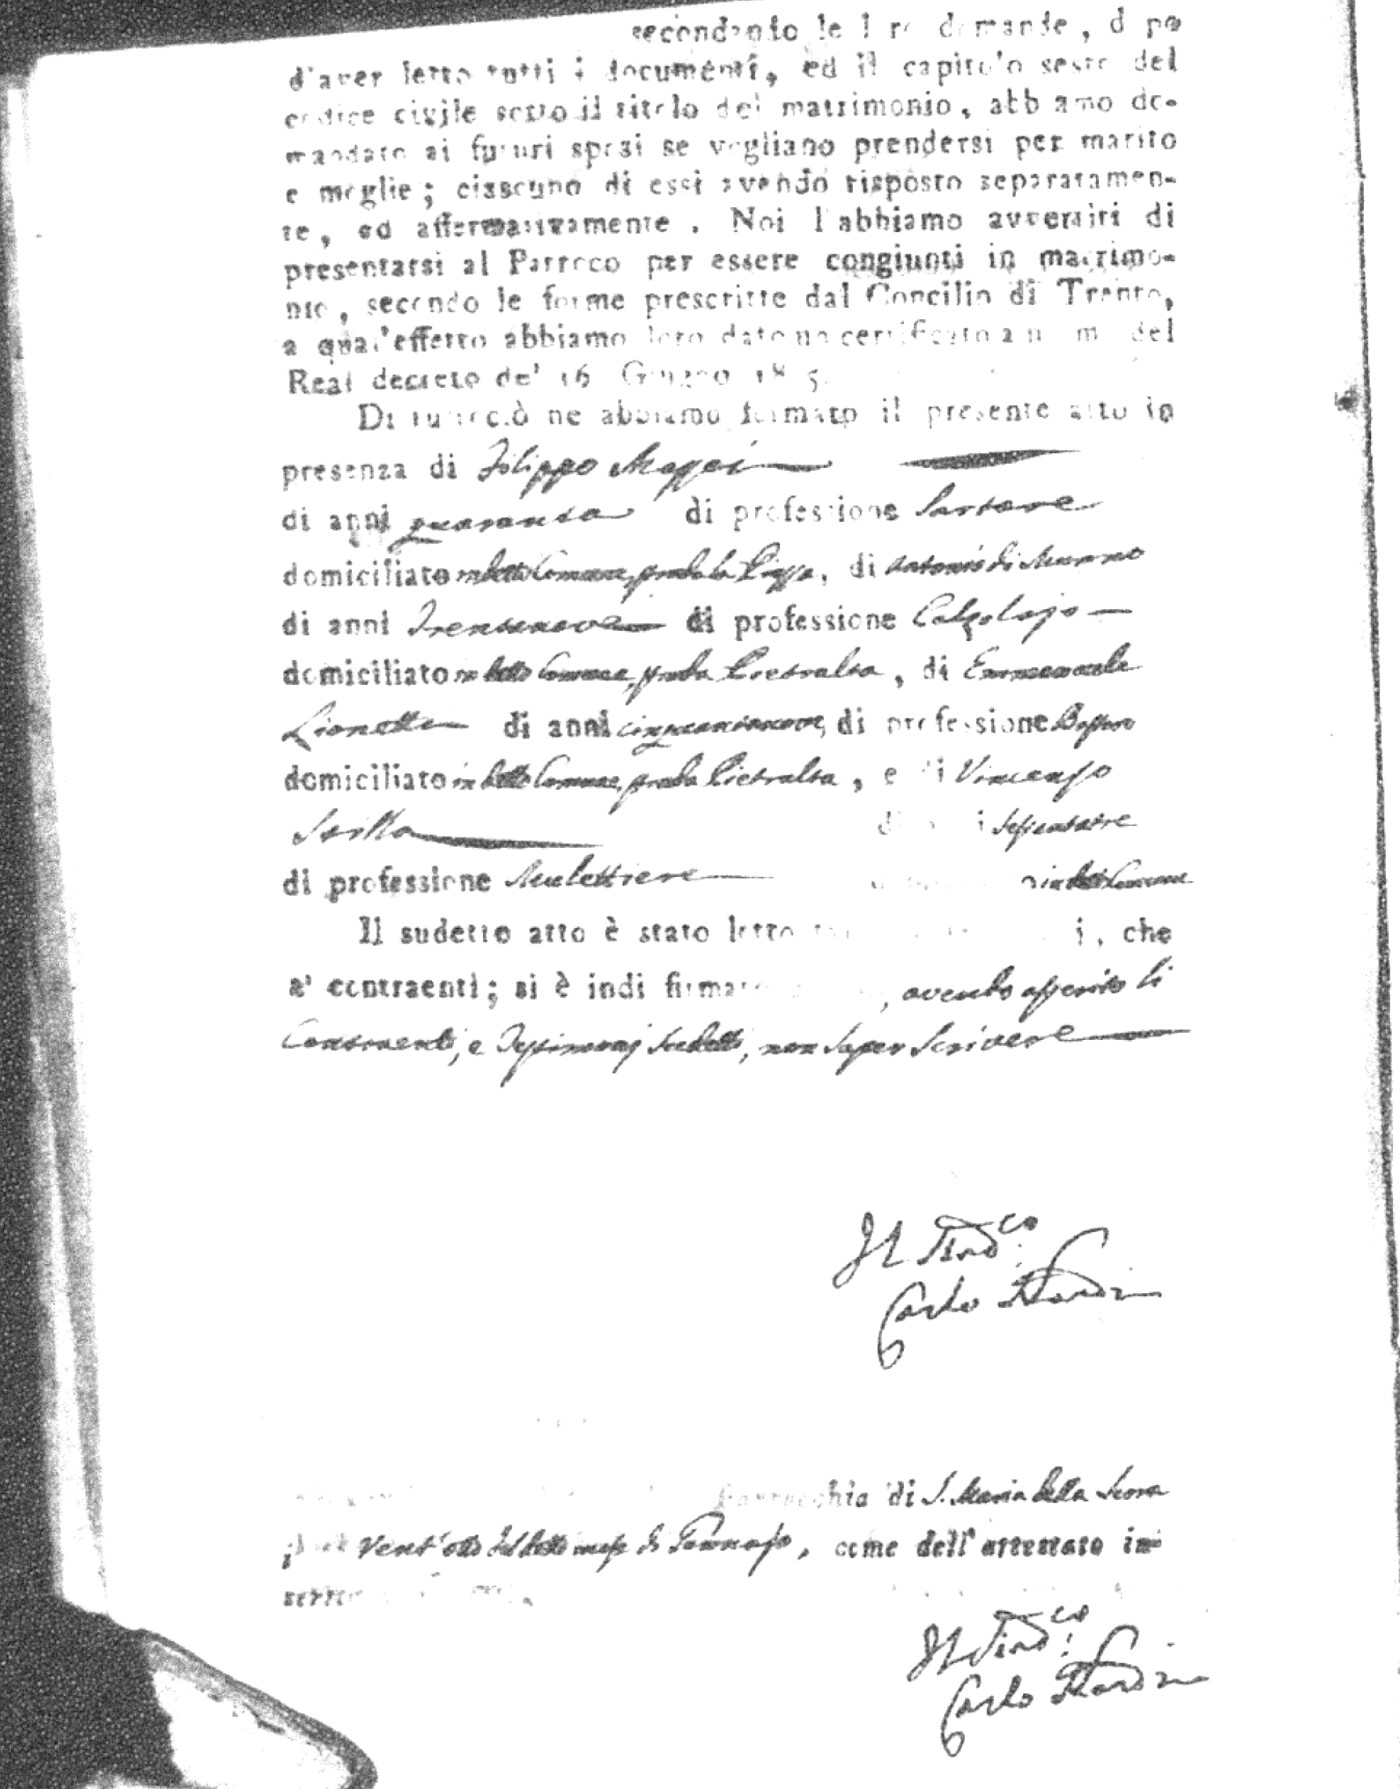 secondando le l re demande, d po
d'aver letto tutti i documenti, ed il capitolo sesto del
codice civile sotto il titolo del matrimonio, abb amo do-
mandato ai futuri sposi se vogliano prendersi per marito
e moglie; ciascuno di essi avendo risposto separatamen-
te, ed affermativamente. Noi l'abbiamo avvertiti di
presentarsi al Parroco per essere congiunti in matrimo-
nio, secondo le forme prescritte dal Concilio di Trento,
a qual'effetto abbiamo loro dato un certificato a n m del
Real decreto de' 16 Giugno 18 5.
Di tutto ciò ne abbiamo formato il presente atto in
presenza di Filippo Maggi
di anni quaranta di professione Sartore
domiciliato in detto Comune, strada la Piazza, di Antonio di Munno
di anni Trentanove di professione Calzolajo
domiciliato in detto Comune, strada Pietralta, di Emmanuele
Lionetti di anni cinquantanove, di professione Bastaro
domiciliato in detto Comune, strada Pietralta, e di Vincenzo
Scilla di anni Sessantatre
di professione Mulettiere in detto Comune
Il sudetto atto è stato letto i, che
a' contraenti; si è indi firmato, avendo asserito li
Contraenti, e Testimonj sudetti, non saper Scrivere
Il Sind.co
Carlo
Parrocchia di S. Maria della Serra
Vent'otto del detto mese di Gennajo, come dell'attestato in-
Il Sind.co
Carlo